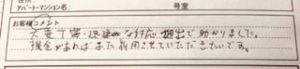 アパート・マンション名 号室
お客様コメント
大変丁寧・迅速な対応 で助かりました。
機会があればまた利用させていただきたいです。